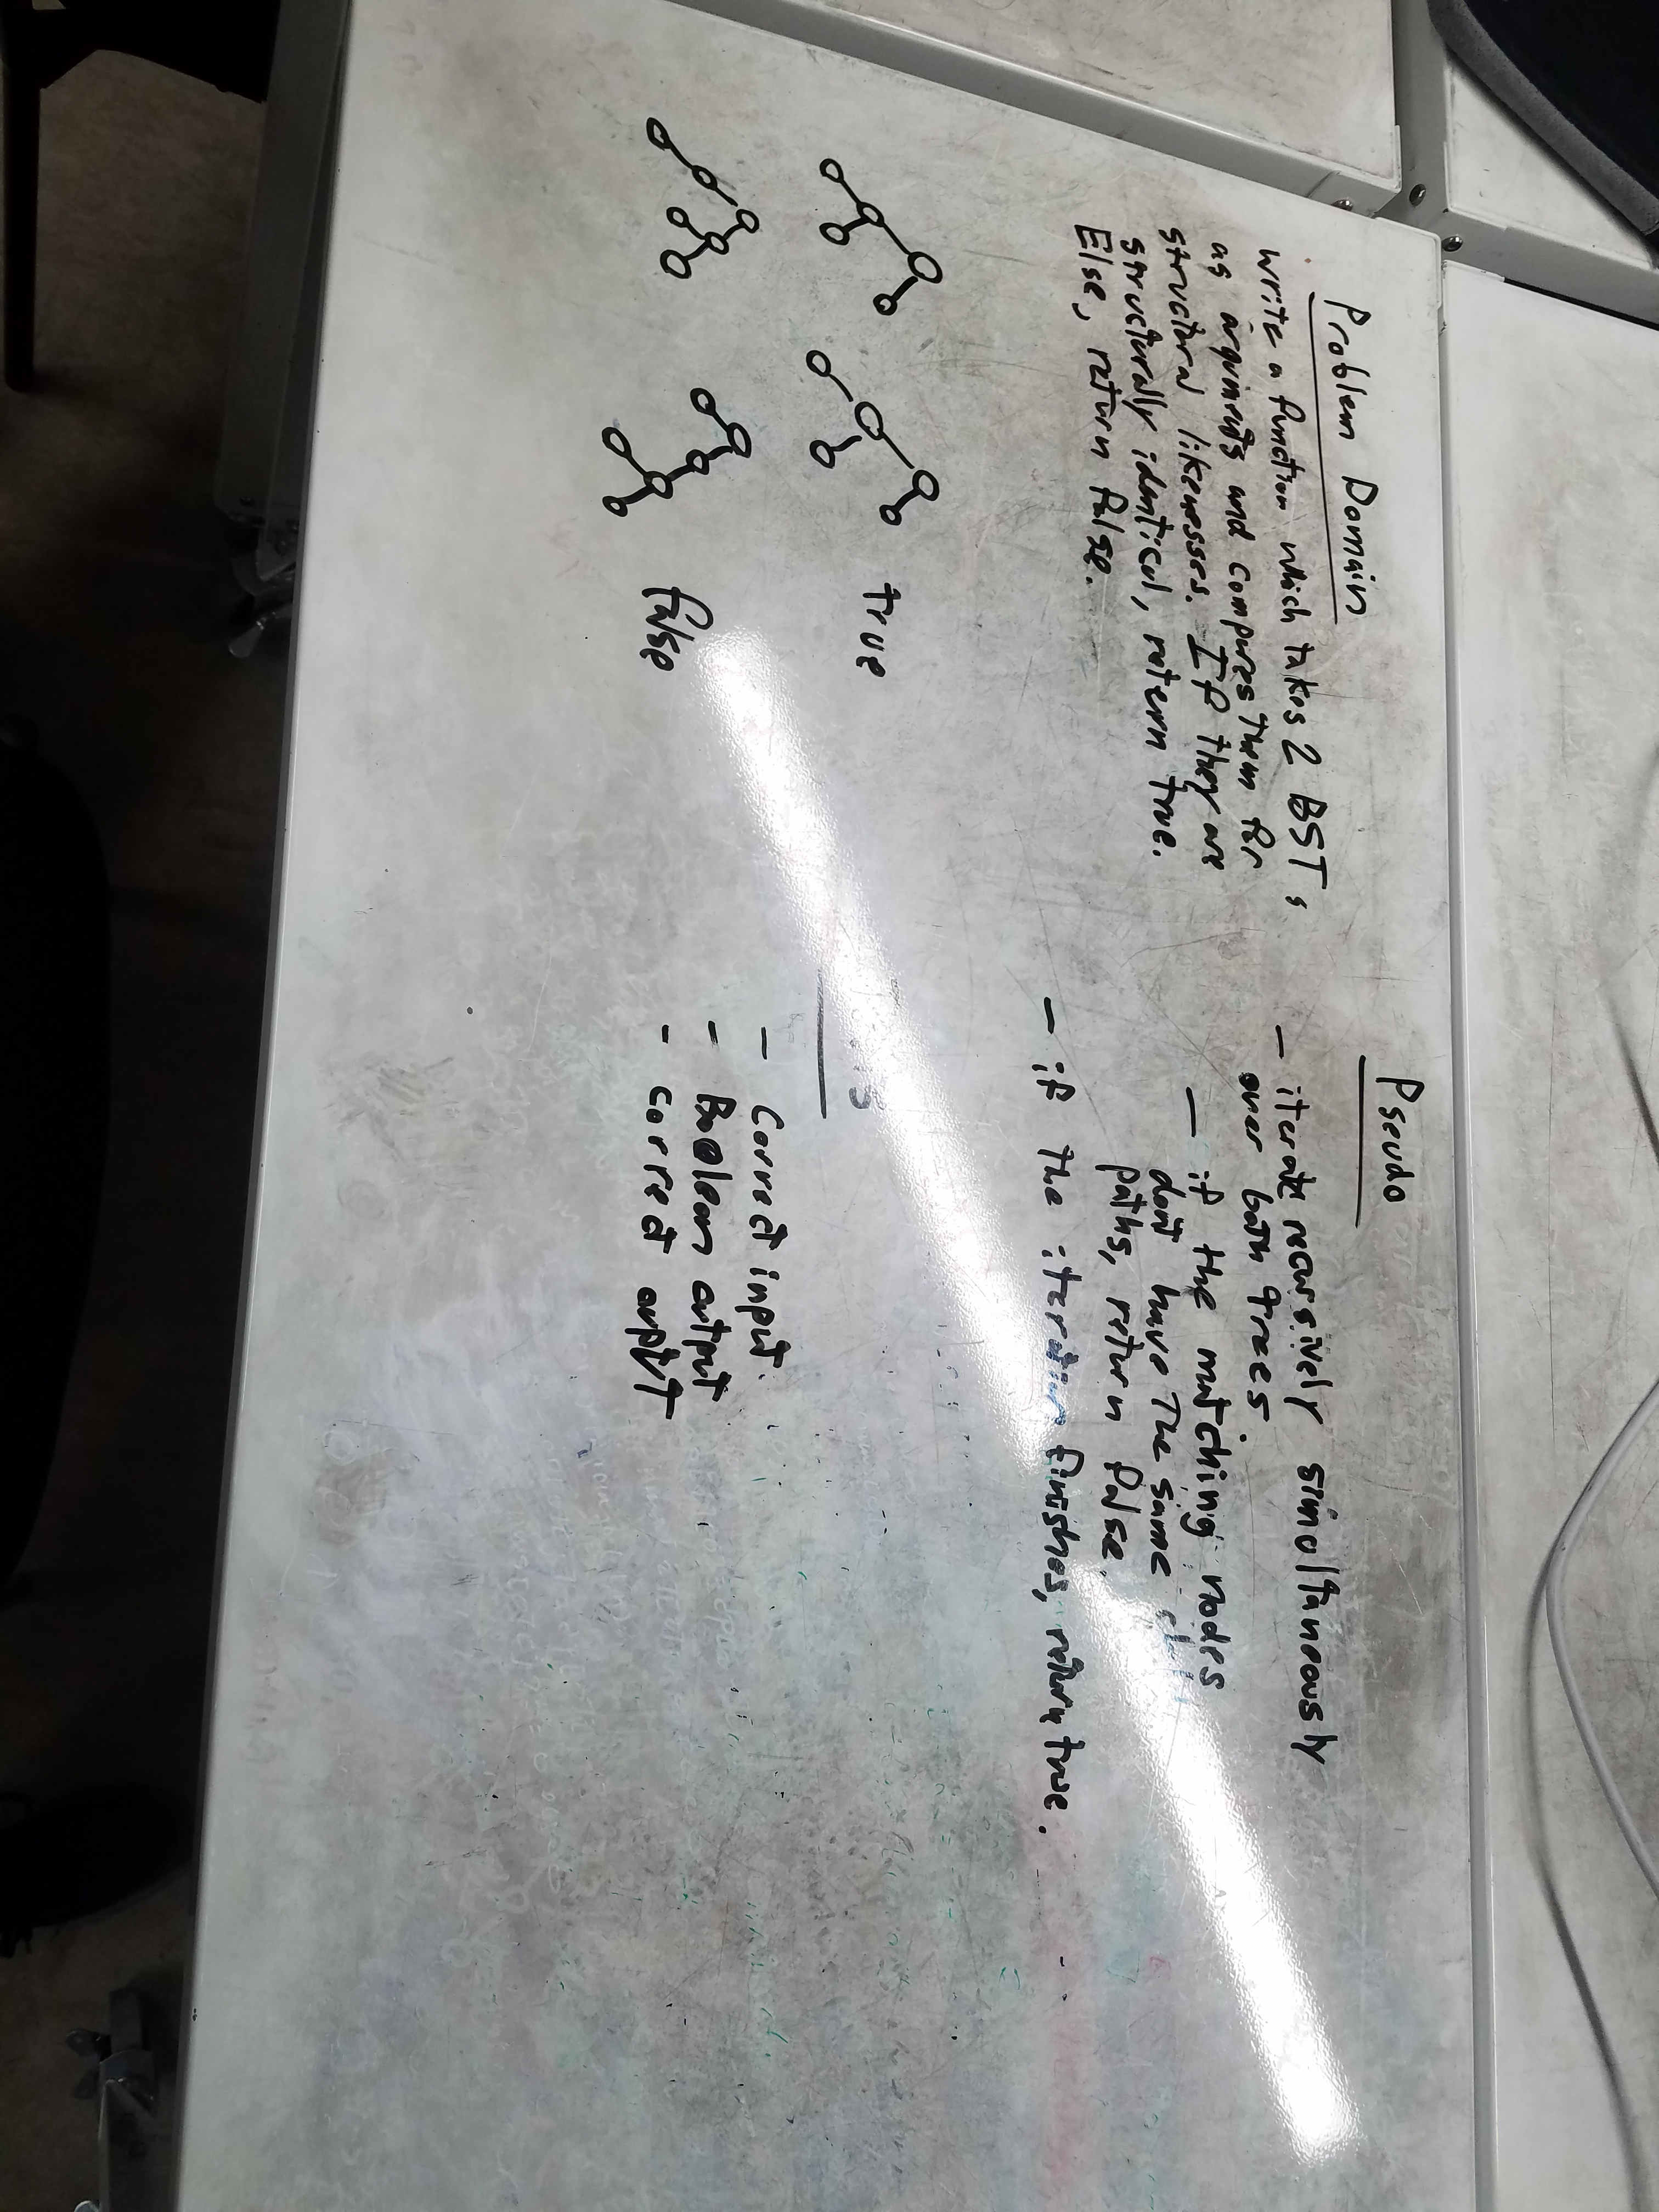 Problem Domain
Write a function which takes 2 BST's
as arguments and compares them for
structural likenesses. If they are
structurally identical, return true.
Else, return false.
true
false
Pseudo
- iterate recursively simoltaneously
over both trees.
- if the matching nodes
dont have the same
paths, return false
- if the iteration finishes, return true.
- Correct input
- Boolean output
- correct output